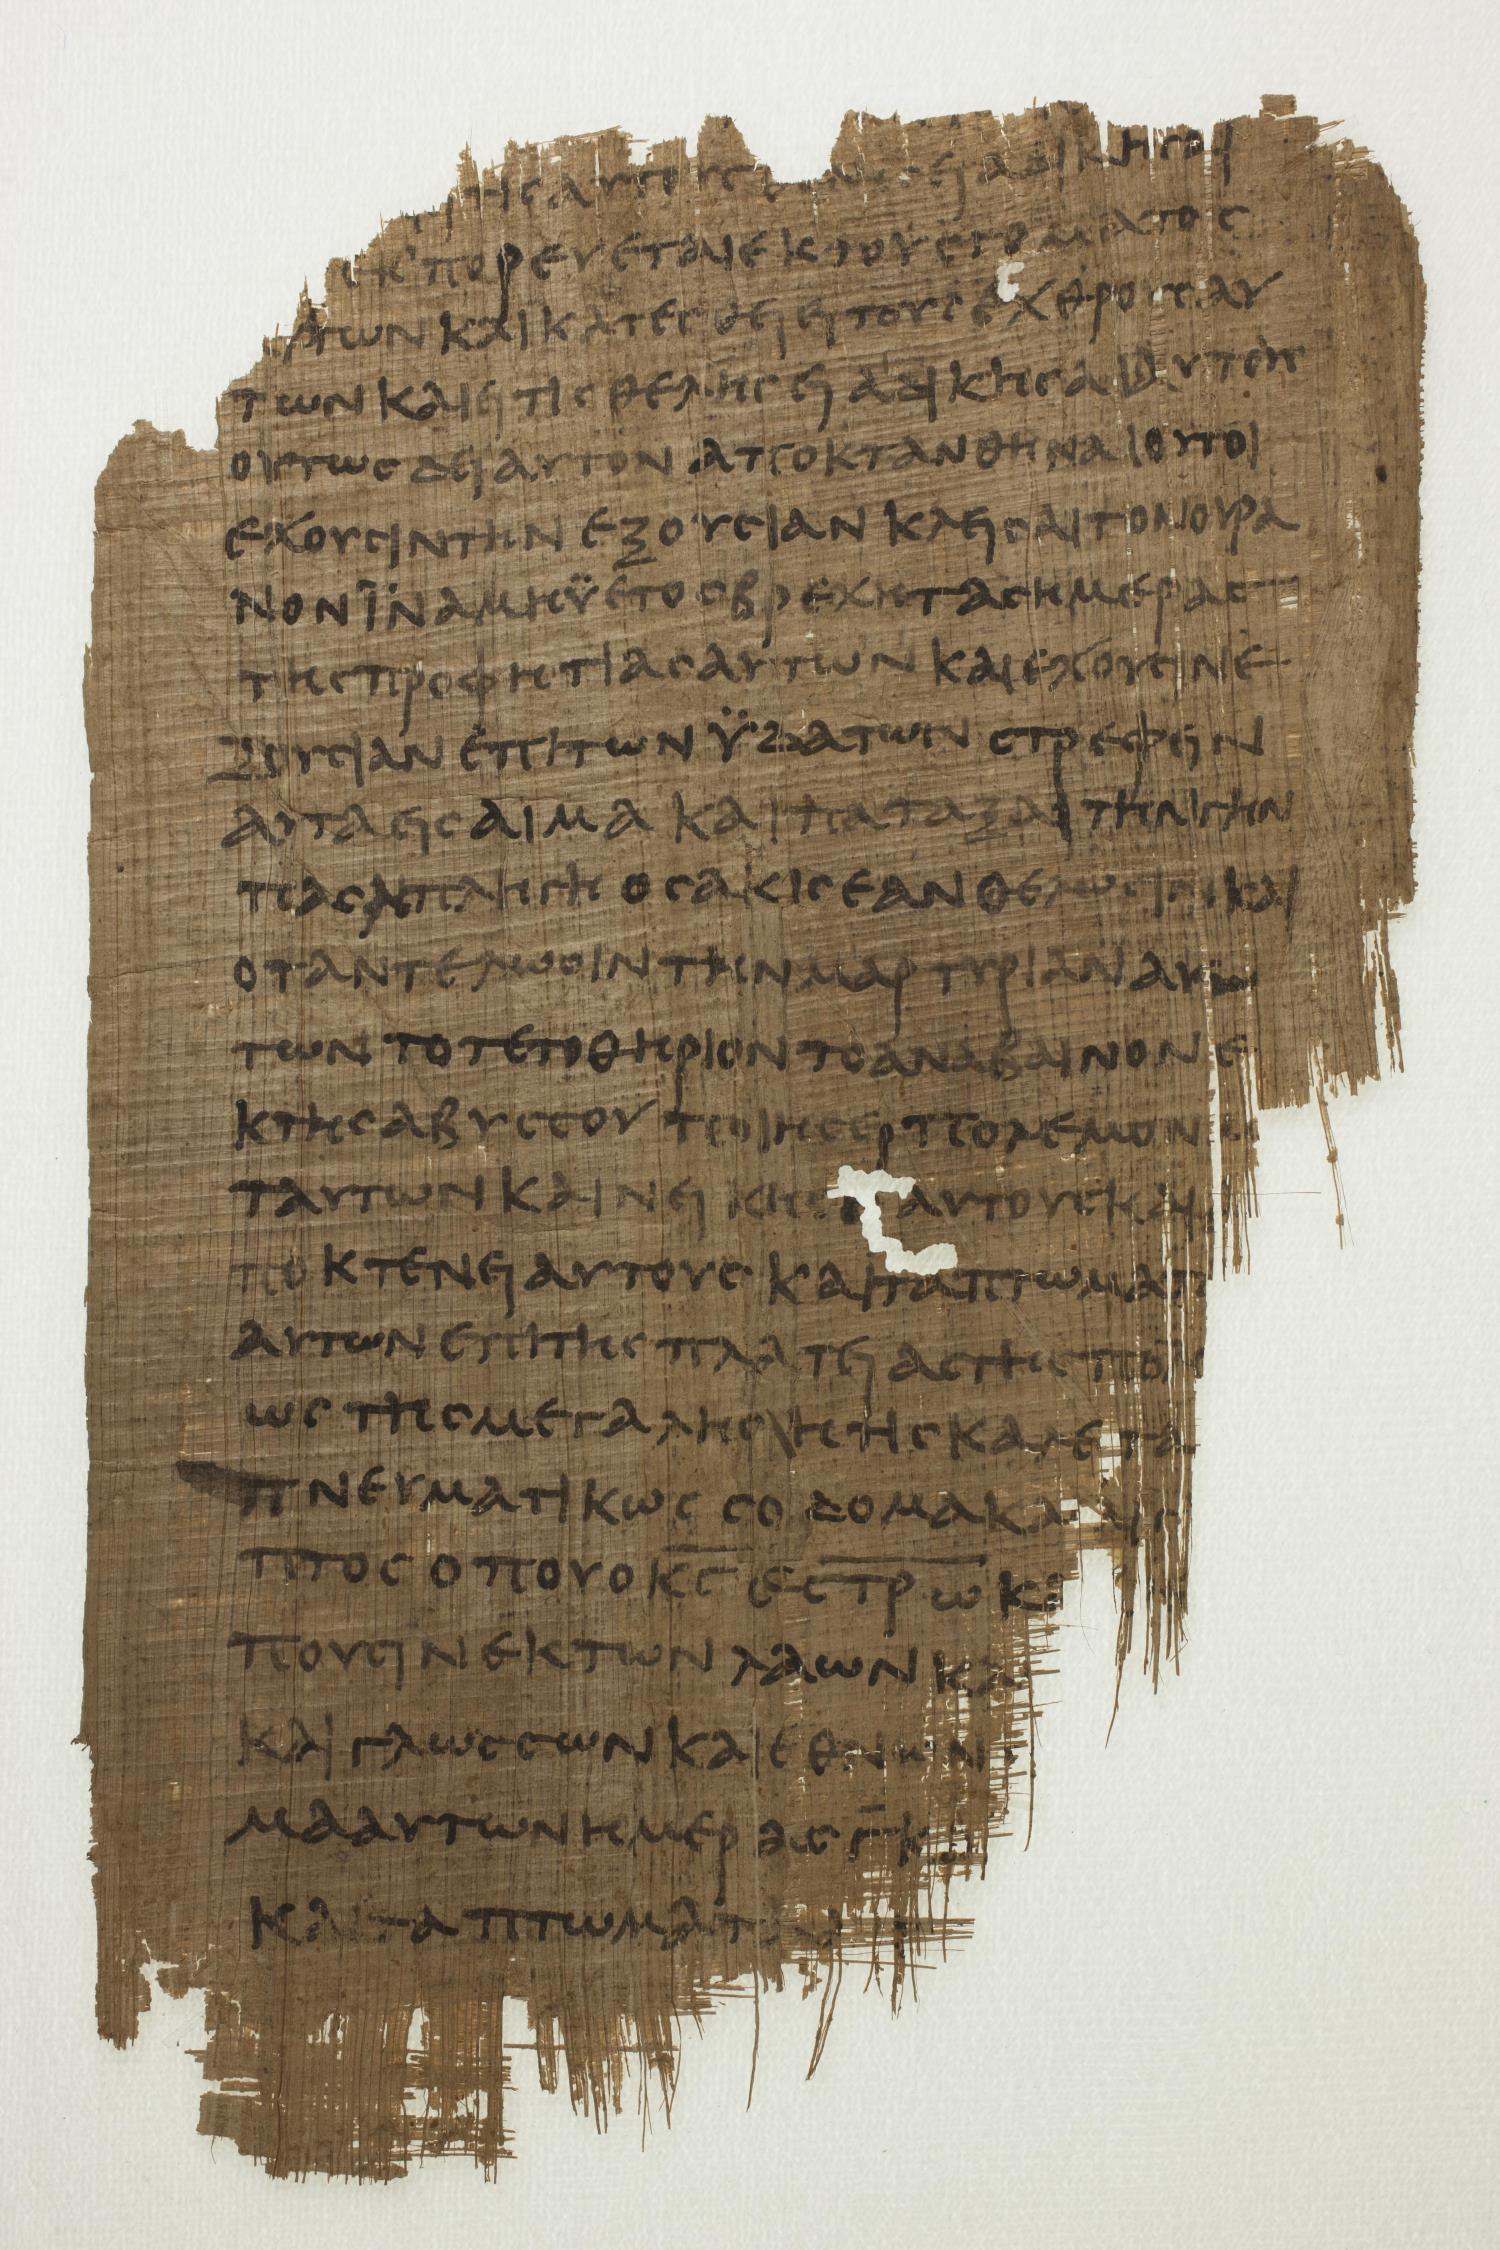 της αυτους αδικησαι
εκπορευεται εκ του στοματος
αυτων και κατεσθειει τους εχθρους αυ
των και ει τις θελησει αδικησαι αυτους
ουτως δει αυτον αποκτανθηναι ουτοι
εχουσιν την εξουσιαν κλεισαι τον ουρα
νον ϊνα μη ϋετος βρεχη τας ημερας
της προφητιας αυτων και εχουσιν ε
ξουσιαν επι των ϋδατων στρεφειν
αυτα εις αιμα και παταξαι την γην
παση πληγη οσακις εαν θελωσιν και
οταν τελωσιν την μαρτυριαν αυ
των τοτε το θηριον το αναβαινον ε
κ της αβυσσου ποιησει πολεμον με
τ αυτων και νεικησει αυτους και
ποκτενει αυτους και τα πτωματ
αυτων επι της πλατειας της πολ
ως της μεγαλης ητις καλετα
πνευματικως σοδομα και αιγ
πτος οπου ο κ̅ς̅ εστρω κα
πουσιν εκ των λαων κα
και γλωσσων και εθνων
μα αυτων ημερας γ̅ κα
και τα πτωματα